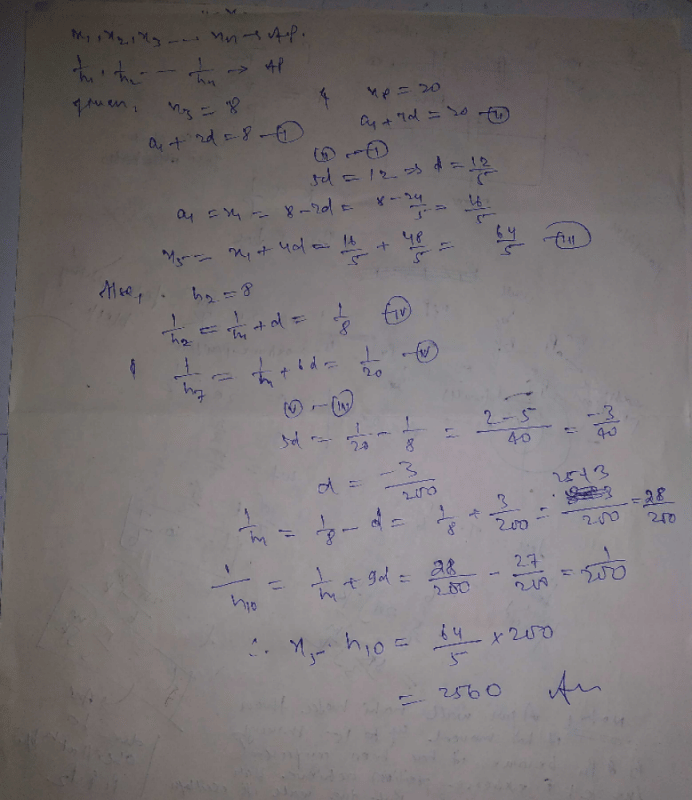 x₁, x₂, x₃ --- xₙ → A.P.
1/h₁, 1/h₂ --- 1/hₙ → AP
given, x₃ = 8 & x₈ = 20
a₁ + 2d = 8 — (I) a₁ + 7d = 20 — (II)
(II) - (I)
5d = 12 ⇒ d = 12/5
a₁ = x₁ = 8 - 2d = 8 - 24/5 = 16/5
x₅ = x₁ + 4d = 16/5 + 48/5 = 64/5 — (III)
Also, h₂ = 8
1/h₂ = 1/h₁ + d = 1/8 (IV)
& 1/h₇ = 1/h₁ + 6d = 1/20 — (V)
(V) - (IV)
5d = 1/20 - 1/8 = (2-5)/40 = -3/40
d = -3/200
1/h₁ = 1/8 - d = 1/8 + 3/200 = (25+3)/200 = 28/200
1/h₁₀ = 1/h₁ + 9d = 28/200 - 27/200 = 1/200
∴ x₅ · h₁₀ = 64/5 × 200
= 2560 Ans